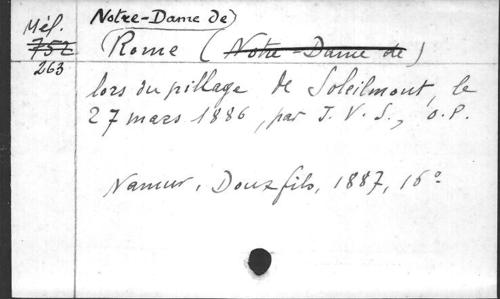 Mél.
752
263
Notre-Dame de)
Rome (Notre-Dame de)
lors du pillage de Soleilmont, le
27 mars 1886, par J. V. S., O.P.
Namur, Douxfils, 1887, 16°